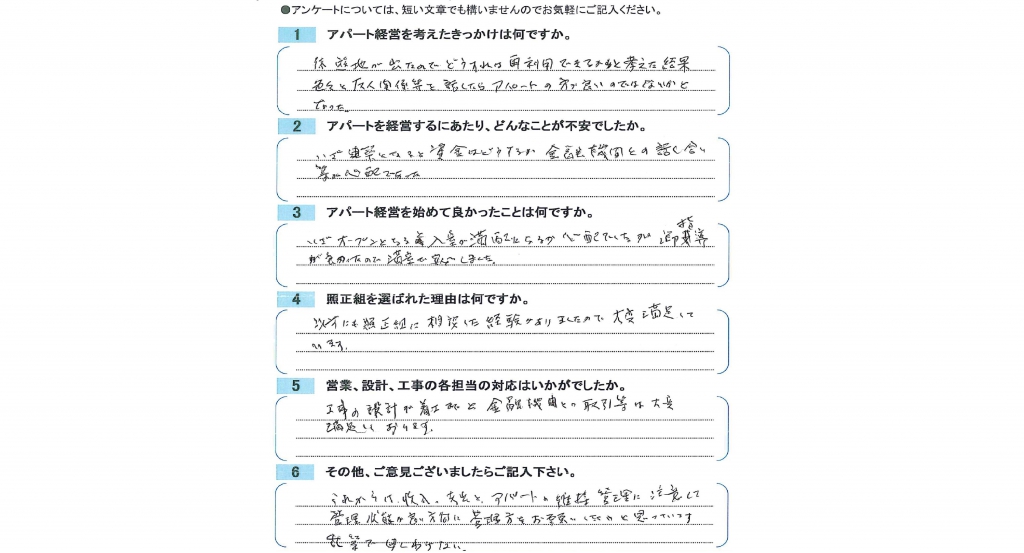 ●アンケートについては、短い文章でも構いませんのでお気軽にご記入ください。
1 アパート経営を考えたきっかけは何ですか。
遊地が出たので どうすれば 再利用できるかと考えた結果
友人関係等と話したら アパートの方が良いのではないかと
なった。
2 アパートを経営するにあたり、どんなことが不安でしたか。
いざ 建築となると 資金はどうするか 金融機関との話し合い
等が心配であった
3 アパート経営を始めて良かったことは何ですか。
いざ オープンとなる 入室が満配になるか 心配していたが 指導
が良かったので 満室 安心しました。
4 照正組を選ばれた理由は何ですか。
以前にも 照正組に 相談した 経験がありましたので 大変 満足して
います。
5 営業、設計、工事の各担当の対応はいかがでしたか。
工事の 設計 着工 金融機関との 取引等は 大変
満足して おります。
6 その他、ご意見ございましたらご記入下さい。
これからは、収入、支出と、アパートの 維持 管理に 注意して
管理 状態が良い方向に 管理方をお願いしたいと思っています
乱筆で 申しわけない。